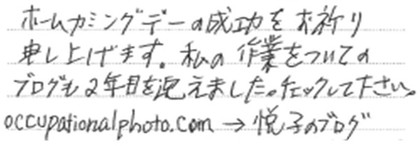 ホームカミングデーの成功をお祈り
申し上げます。私の作業をついての
ブログも2年目を迎えました。チェックして下さい。
occupationalphoto.com → 悦子のブログ